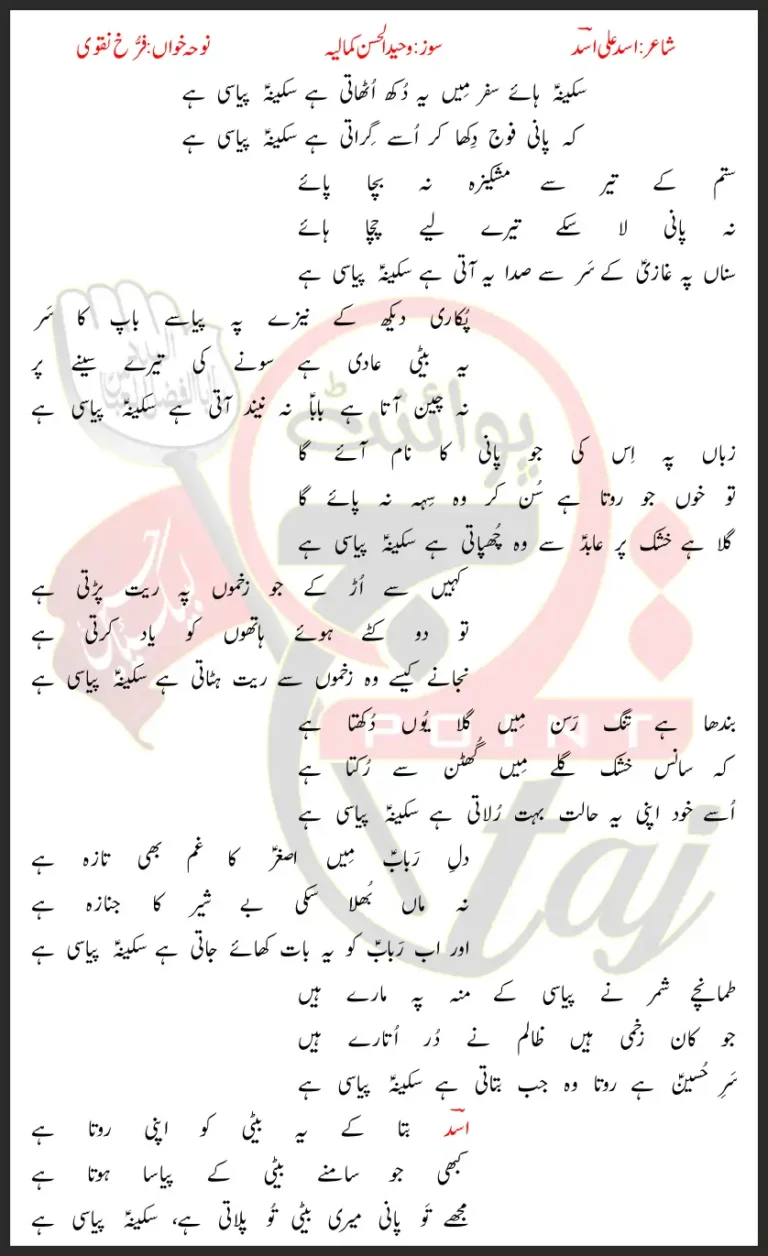 شاعر: اسد علی اسدؔ سوز: وحید الحسن کمالیہ نوحہ خواں: فرُّخ نقوی
سکینہؑ ہائے سفر مِیں یہ دُکھ اُٹھاتی ہے سکینہؑ پیاسی ہے
کہ پانی فوج دِکھا کر اُسے گِراتی ہے سکینہؑ پیاسی ہے
ستم کے تیر سے مشکیزہ نہ بچا پائے
نہ پانی لا سکے تیرے لیے چچا ہائے
سناں پہ غازیؑ کے سَر سے صدا یہ آتی ہے سکینہؑ پیاسی ہے
پُکاری دیکھ کے نیزے پہ پیاسے باپ کا سَر
یہ بیٹی عادی ہے سونے کی تیرے سینے پر
نہ چین آتا ہے باباؑ نہ نیند آتی ہے سکینہؑ پیاسی ہے
زباں پہ اِس کی جو پانی کا نام آئے گا
تو خوں جو روتا ہے سُن کر وہ سِہہ نہ پائے گا
گلا ہے خشک پر عابدؑ سے وہ چُھپاتی ہے سکینہؑ پیاسی ہے
کہیں سے اُڑ کے جو زخموں پہ ریت پڑتی ہے
تو دو کٹے ہوئے ہاتھوں کو یاد کرتی ہے
نجانے کیسے وہ زخموں سے ریت ہٹاتی ہے سکینہؑ پیاسی ہے
بندھا ہے تنگ رَسن مِیں گلا یُوں دُکھتا ہے
کہ سانس خشک گلے مِیں گُھٹن سے رُکتا ہے
اُسے خود اپنی یہ حالت بہت رُلاتی ہے سکینہؑ پیاسی ہے
دلِ رَبابؑ مِیں اصغرؑ کا غم بھی تازہ ہے
نہ ماں بُھلا سکی بے شیر کا جنازہ ہے
اور اب رَبابؑ کو یہ بات کھائے جاتی ہے سکینہؑ پیاسی ہے
طمانچے شمر نے پیاسی کے منہ پہ مارے ہیں
جو کان زخمی ہیں ظالم نے دُر اُتارے ہیں
سَرِ حُسینؑ ہے روتا وہ جب بتاتی ہے سکینہؑ پیاسی ہے
اسدؔ بتا کے یہ بیٹی کو اپنی روتا ہے
کبھی جو سامنے بیٹی کے پیاسا ہوتا ہے
مجھے تَو پانی میری بیٹی تُو پلاتی ہے، سکینہؑ پیاسی ہے
پوائنٹ
POINT
taj